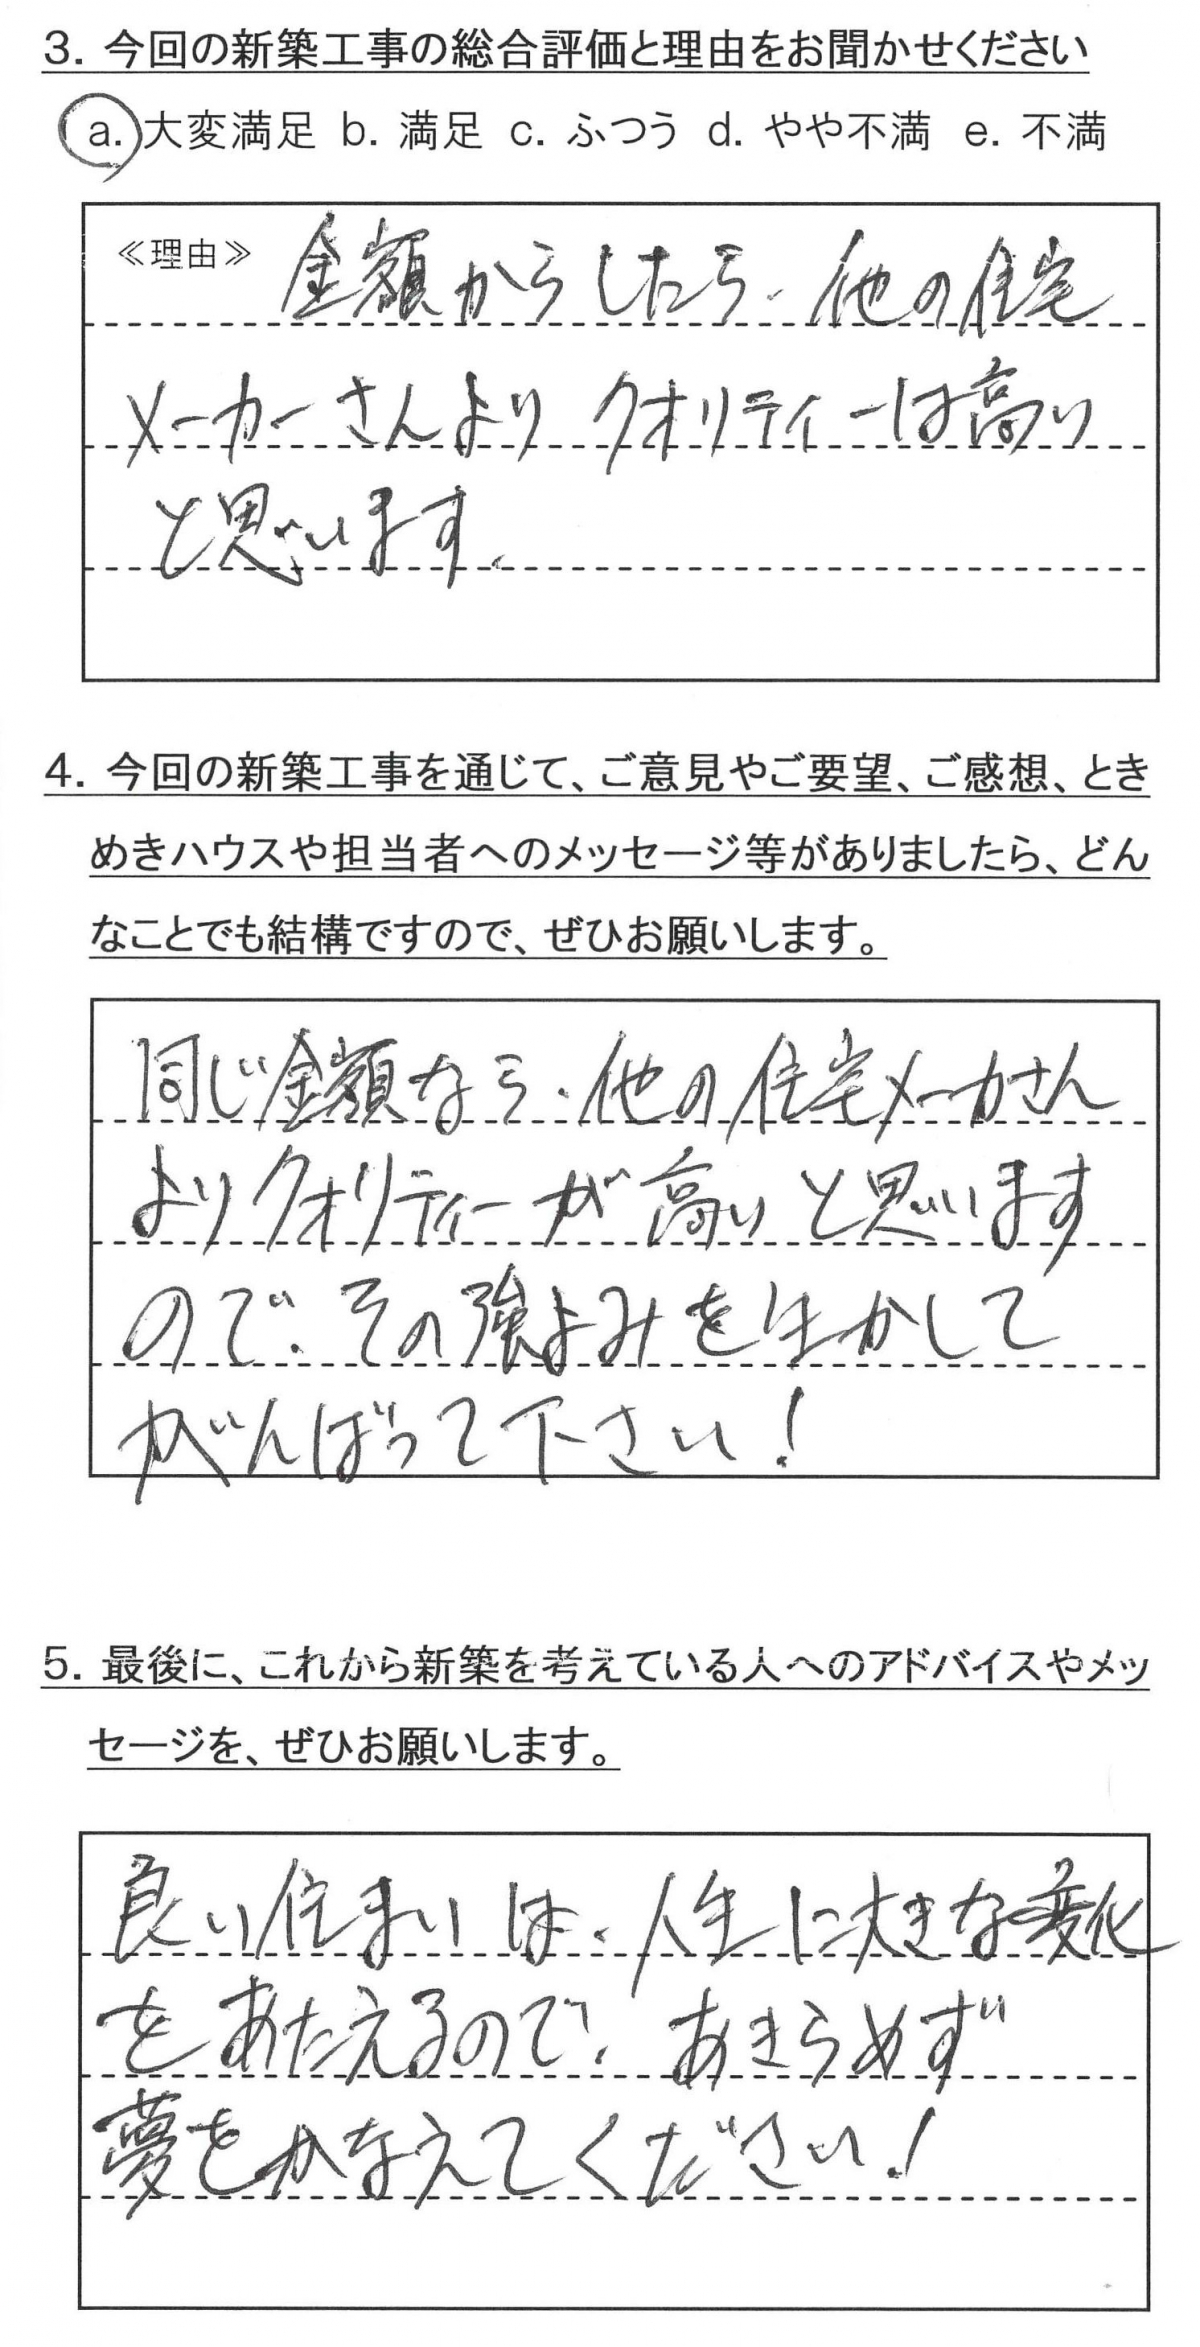 3. 今回の新築工事の総合評価と理由をお聞かせください
a. 大変満足 b. 満足 c. ふつう d. やや不満 e. 不満
≪理由≫ 金額からしたら、他の住宅
メーカーさんより クオリティーは高い
と思います。
4. 今回の新築工事を通じて、ご意見やご要望、ご感想、とき
めきハウスや担当者へのメッセージ等がありましたら、どん
なことでも結構ですので、ぜひお願いします。
同じ金額なら、他の住宅メーカさん
よりクオリティーが高いと思います
ので、その強よみを生かして
がんばって下さい!
5. 最後に、これから新築を考えている人へのアドバイスやメッ
セージを、ぜひお願いします。
良い住まいは、人生に大きな変化
をあたえるので、あきらめず
夢をかなえてください!